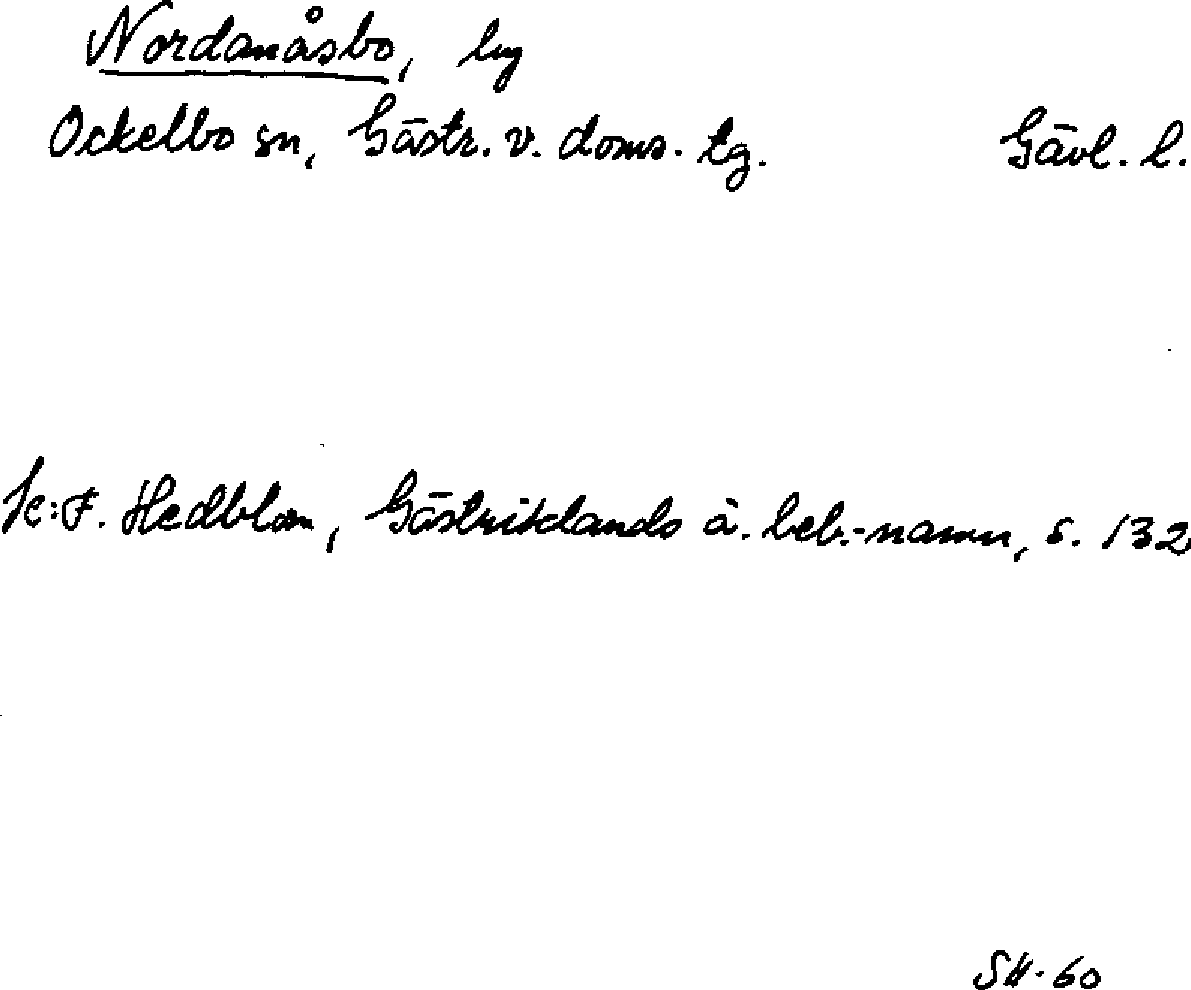 Nordanåsbo, by
Ockelbo sn, Gästr. v. doms. tg. Gävl. l.
Se: F. Hedblom, Gästriklands ä. beb.-namn, s. 132
SH-60